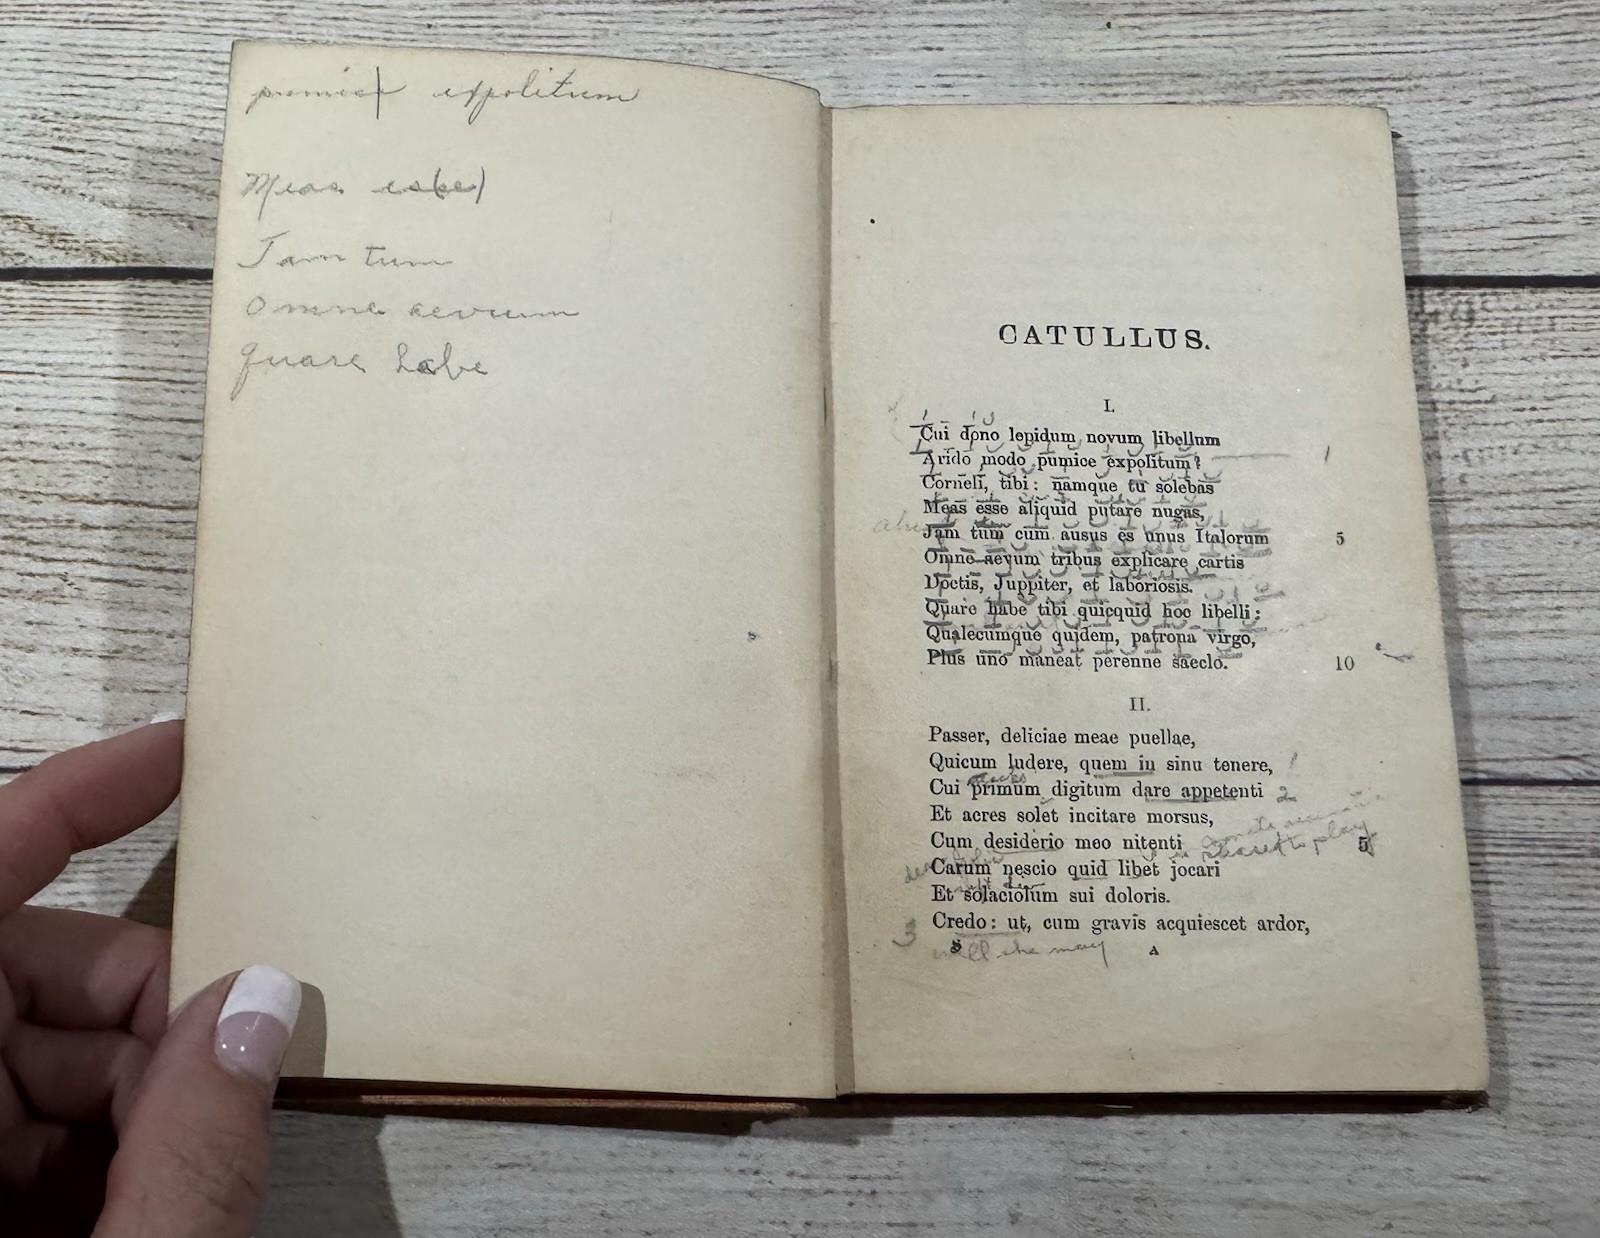 pumice expolitum
Meas es(se)
Jam tum
Omne aevum
Quare habe
CATULLUS.
I.
Cui dono lepidum novum libellum
Arido modo pumice expolitum?
Corneli, tibi: namque tu solebas
Meas esse aliquid putare nugas,
Jam tum cum ausus es unus Italorum 5
Omne aevum tribus explicare cartis
Doctis, Juppiter, et laboriosis.
Quare habe tibi quicquid hoc libelli:
Qualecumque quidem, patrona virgo,
Plus uno maneat perenne saeclo. 10
II.
Passer, deliciae meae puellae,
Quicum ludere, quem in sinu tenere, 1
Cui primum digitum dare appetenti 2
Et acres solet incitare morsus,
Cum desiderio meo nitenti 5
to play
Carum nescio quid libet jocari
Et solaciolum sui doloris.
3 Credo: ut, cum gravis acquiescet ardor,
she may
A